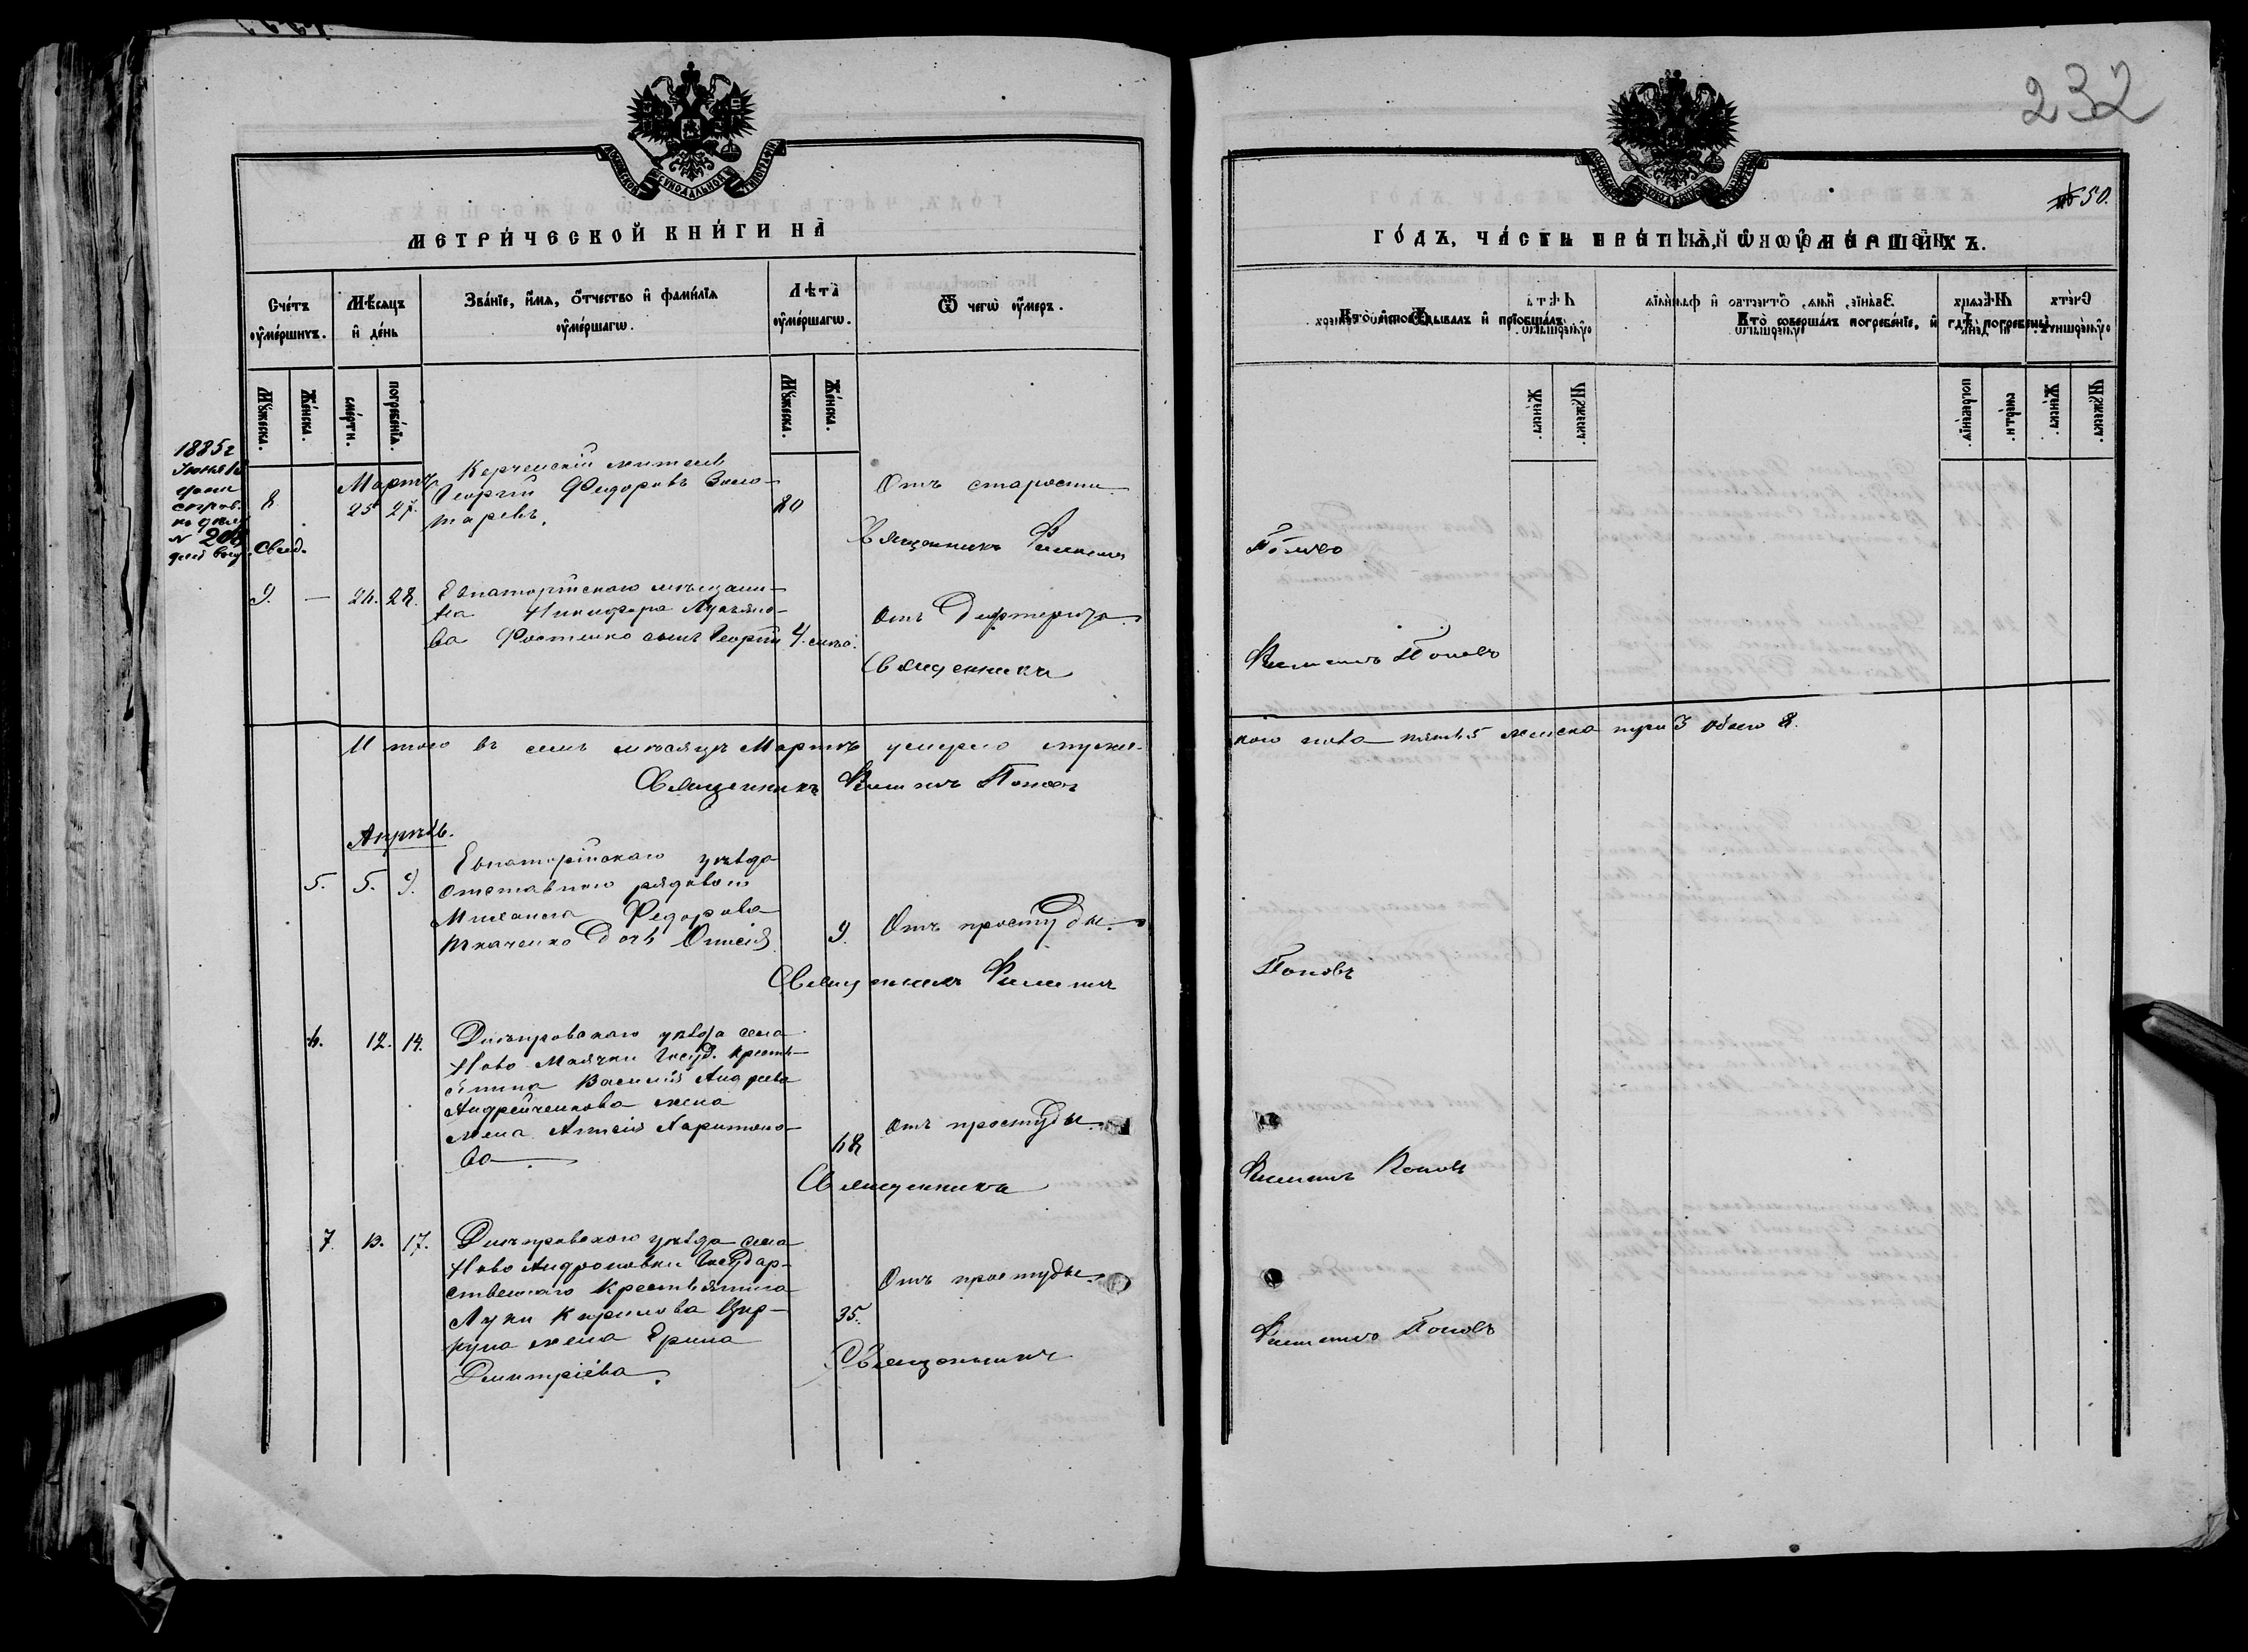 232
50.
МЕТРИ́ЧЕСКОЙ КНИ́ГИ НА̀
ГО́ДЪ, ЧА́СТЬ ТРЕ́ТІѦ, Ѡ ОУ҆МЕ́РШИХЪ.
Сче́тъ оу҆ме́ршихъ.
Мѣ́сяцъ и҆ де́нь
Зва́нїе, и҆́мѧ, ѻ҆́тчество и҆ фамилїѧ оу҆ме́ршагѡ.
Лѣта̀ оу҆ме́ршагѡ.
Ѿ чегѡ̀ оу҆́меръ.
Кто̀ и҆сповѣ́дывалъ и҆ прїѡбща́лъ.
Кто̀ соверша́лъ погребе́нїе, и҆ гдѣ̀ погребены̀.
Мꙋ́жеска.
Же́нска.
сме́рти.
погребе́нїѧ.
Мꙋ́жеска.
Же́нска.
1885г
Іюня
справ.
по дѣлу
№ 208
Свид.
Мартъ
8
25 27.
Керченскій житель
Георгій Федоровъ Золо-
таревъ.
80
Отъ старости
Священникъ Филиппъ
Поповъ
9. — 24. 28.
Евпаторійскаго мѣщани-
на Никифора Лукьяно-
ва Фостенко сынъ Георгій
4.
отъ Дифтерита
Священникъ
Филиппъ Поповъ
Итого въ семъ мѣсяцѣ Мартѣ умерло мужес-
каго пола пять 5 женска три 3 обоего 8.
Священникъ Филиппъ Поповъ
Апрѣль.
5. 5. 9.
Евпаторійскаго уѣзда
отставного рядового
Михаила Федорова
Ткаченко Дочь
9.
Отъ простуды.
Священникъ Филиппъ
Поповъ
6. 12. 14.
Днѣпровскаго уѣзда села
Ново Маячки Госуд. кресть-
янина Василія Андреева
Андрейченкова жена
жена Харитоно-
ва
68
отъ простуды.
Священникъ
Филиппъ Поповъ
7. 13. 17.
Днѣпровского уѣзда села
Ново Андроновки Государ-
ственнаго Крестьянина
Луки Кирилова Цир-
куна жена Ерина
Дмитріева.
35.
Отъ простуды.
Священникъ
Филиппъ Поповъ